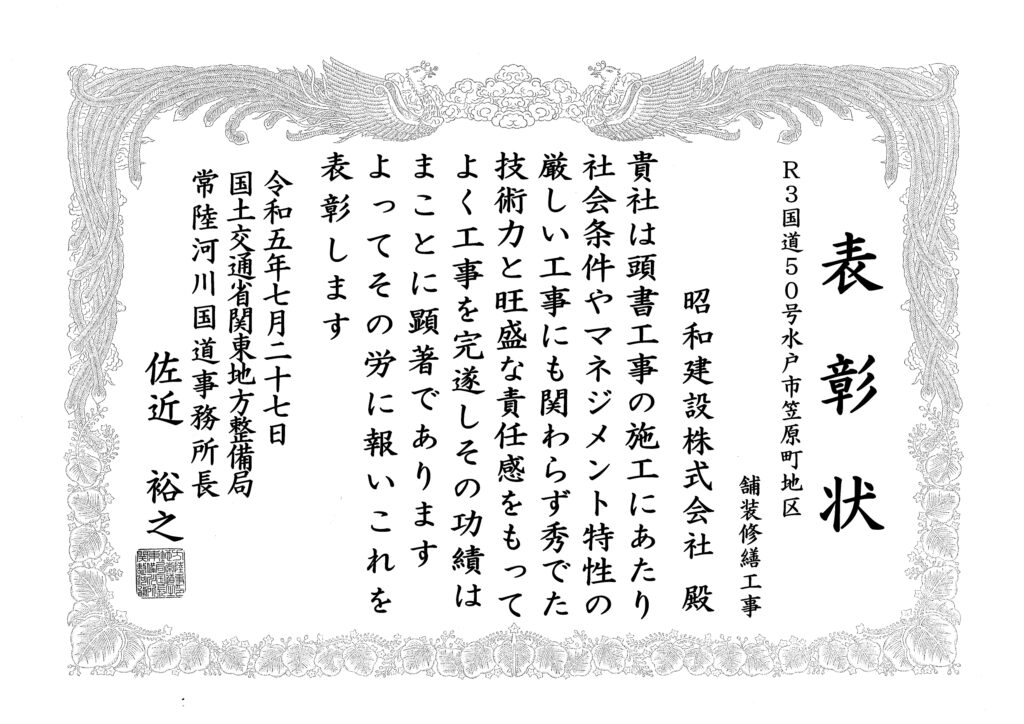 表彰状
R3国道50号水戸市笠原町地区
舗装修繕工事
昭和建設株式会社 殿
貴社は頭書工事の施工にあたり
社会条件やマネジメント特性の
厳しい工事にも関わらず秀でた
技術力と旺盛な責任感をもって
よく工事を完遂しその功績は
まことに顕著であります
よってその労に報いこれを
表彰します
令和五年七月二十七日
国土交通省関東地方整備局
常陸河川国道事務所長
佐近 裕之